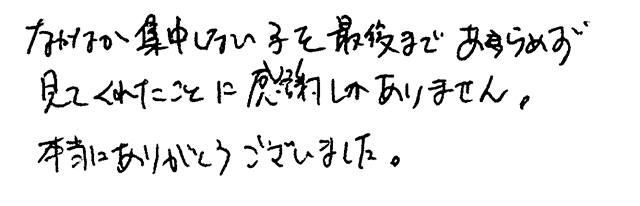 なかなか集中しない子を最後まであきらめず
見てくれたことに感謝しかありません。
本当にありがとうございました。